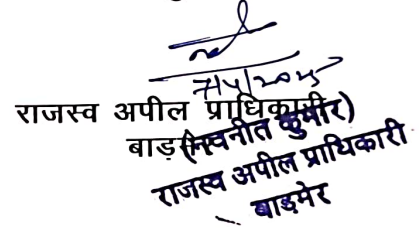 7/4/2025
राजस्व अपील प्राधिकारी
बाड़मेर
(नवनीत कुमार)
राजस्व अपील प्राधिकारी
बाड़मेर